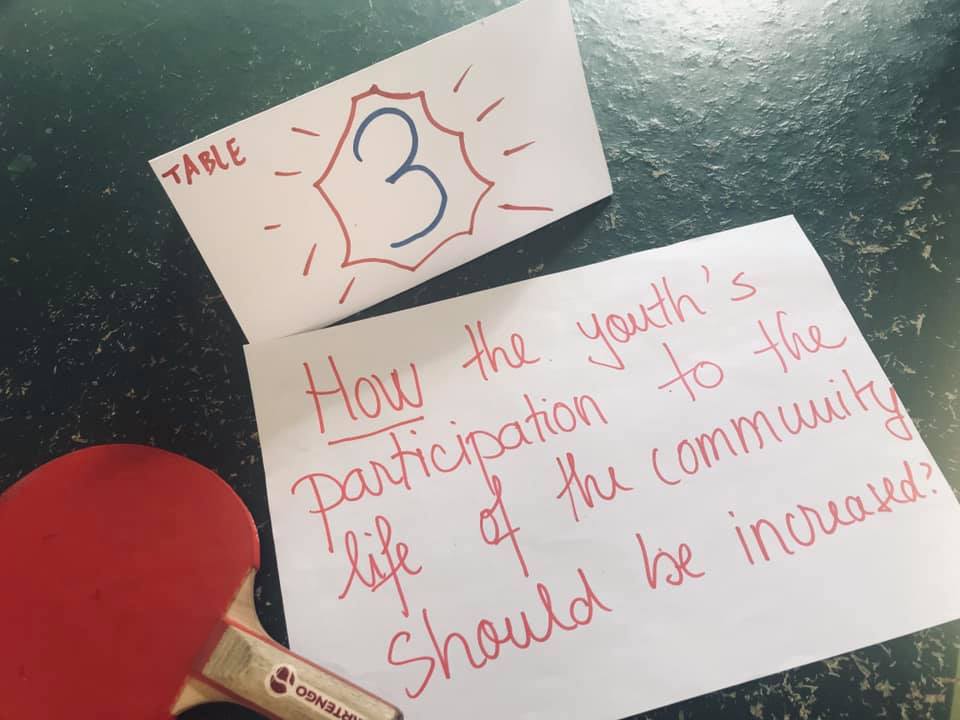 TABLE
3
How the youth's
participation to the
life of the community
should be increased?
ARTENGO